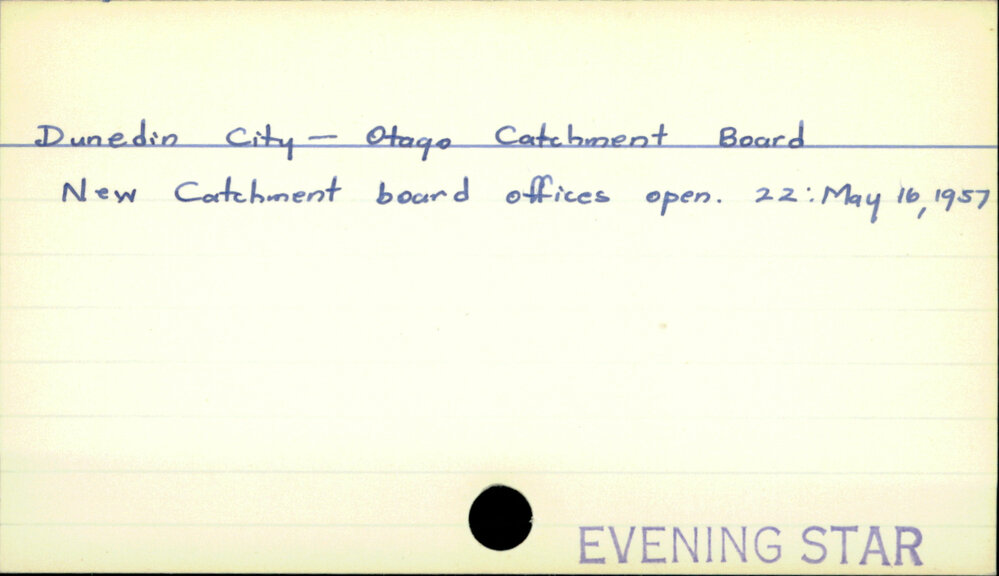 Dunedin City — Otago Catchment Board
New Catchment board offices open. 22: May 16, 1957
EVENING STAR